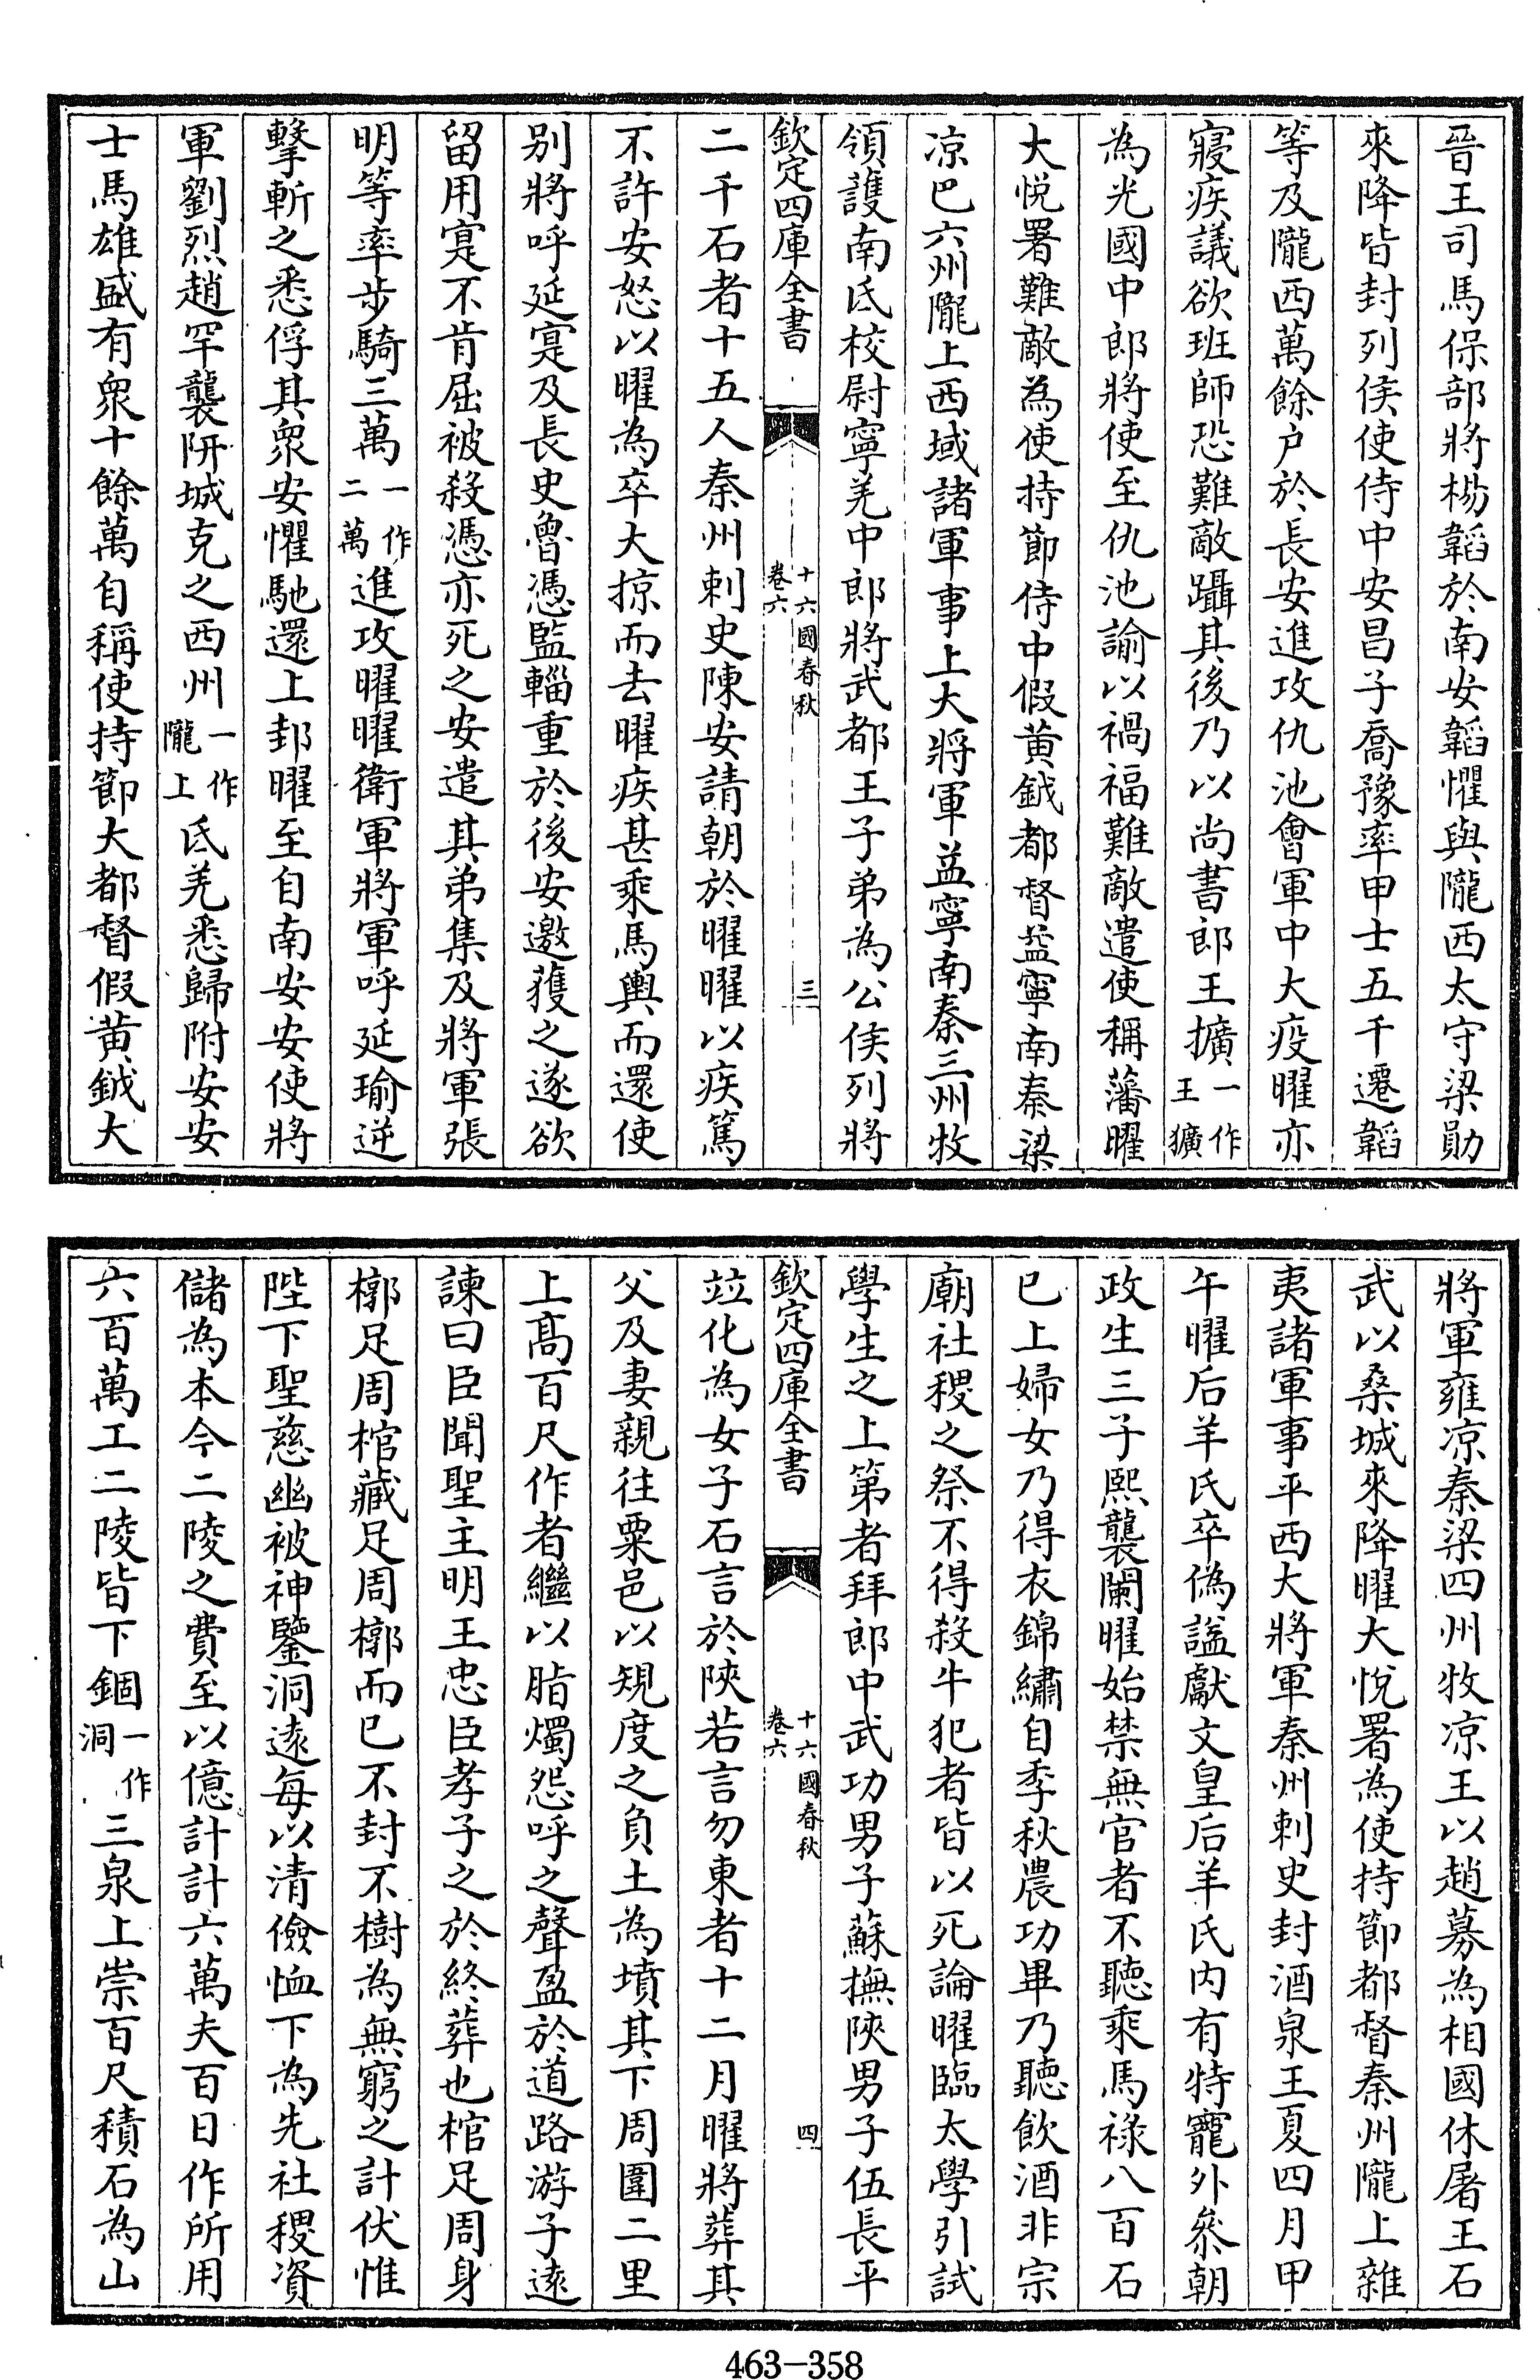 晉王司馬保部將楊韜於南安韜懼與隴西太守梁勛
來降皆封列侯使侍中安昌子喬豫率甲士五千遷韜
等及隴西萬餘户於長安進攻仇池會軍中大疫曜亦
寢疾議欲班師恐難敵躡其後乃以尚書郎王擴一作王獷
為光國中郎將使至仇池諭以禍福難敵遣使稱藩曜
大悅署難敵為使持節侍中假黄鉞都督益寧南秦梁
凉巴六州隴上西域諸軍事上大將軍益寧南秦三州牧
領護南氐校尉寧羌中郎將武都王子弟為公侯列將
欽定四庫全書 十六國春秋 卷六 三
二千石者十五人秦州刺史陳安請朝於曜曜以疾篤
不許安怒以曜為卒大掠而去曜疾甚乘馬輿而還使
别將呼延寔及長史魯憑監輜重於後安邀獲之遂欲
留用寔不肯屈被殺憑亦死之安遣其弟集及將軍張
明等率步騎三萬一作二萬進攻曜曜衛軍將軍呼延瑜逆
擊斬之悉俘其衆安懼馳還上邽曜至自南安安使將
軍劉烈趙罕襲阱城克之西州一作隴上氐羌悉歸附安安
士馬雄盛有衆十餘萬自稱使持節大都督假黄鉞大
將軍雍凉秦梁四州牧凉王以趙募為相國休屠王石
武以桑城來降曜大悅署為使持節都督秦州隴上雜
夷諸軍事平西大將軍秦州刺史封酒泉王夏四月甲
午曜后羊氏卒偽諡獻文皇后羊氏内有特寵外叅朝
政生三子熙襲闡曜始禁無官者不聽乘馬禄八百石
已上婦女乃得衣錦繡自季秋農功畢乃聽飲酒非宗
廟社稷之祭不得殺牛犯者皆以死論曜臨太學引試
學生之上第者拜郎中武功男子蘇撫陝男子伍長平
欽定四庫全書 十六國春秋 卷六 四
竝化為女子石言於陝若言勿東者十二月曜將葬其
父及妻親往粟邑以規度之負土為墳其下周圍二里
上髙百尺作者繼以脂燭怨呼之聲盈於道路游子遠
諫曰臣聞聖主明王忠臣孝子之於終葬也棺足周身
槨足周棺藏足周槨而已不封不樹為無窮之計伏惟
陛下聖慈幽被神鑒洞逺每以清儉恤下為先社稷資
儲為本今二陵之費至以億計計六萬夫百日作所用
六百萬工二陵皆下錮一作洞三泉上崇百尺積石為山
463-358